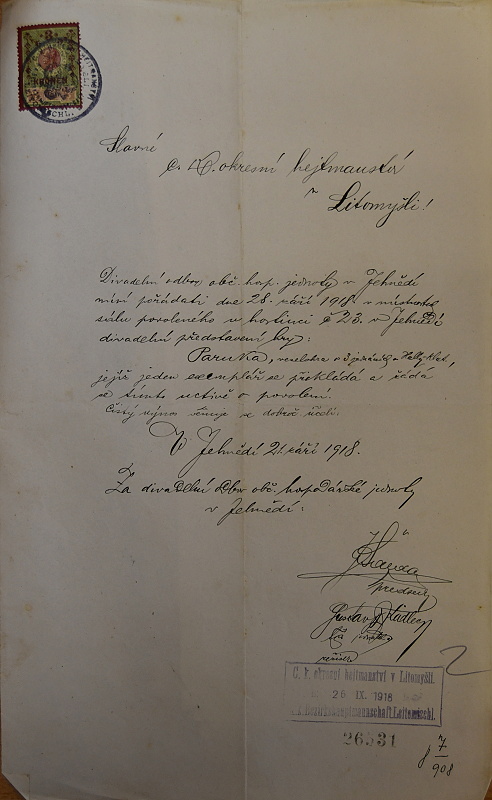 Slavné
c. k. okresní hejtmanství
v
Litomyšli!
Divadelní odbor obč. hosp. jednoty v Jehnědí
míní pořádati dne 28. září 1918 v místnostech
sálu povoleného v hostinci č 23. v Jehnědí
divadelní představení hry:
Paruka, veselohra o 3 jednáních
jejíž jeden exemplář se překládá a žádá
se tímto uctivě o povolení.
Čistý výnos věnuje se dobrému účeli.
V Jehnědí 21. září 1918.
Za divadelní odbor obč. hospodářské jednoty
v Jehnědí:
předseda
Gustav
C. k. okresní hejtmanství v Litomyšli.
26 IX. 1918
k. k. Bezirkshauptmannschaft Leitomischl.
26531
8 7/908